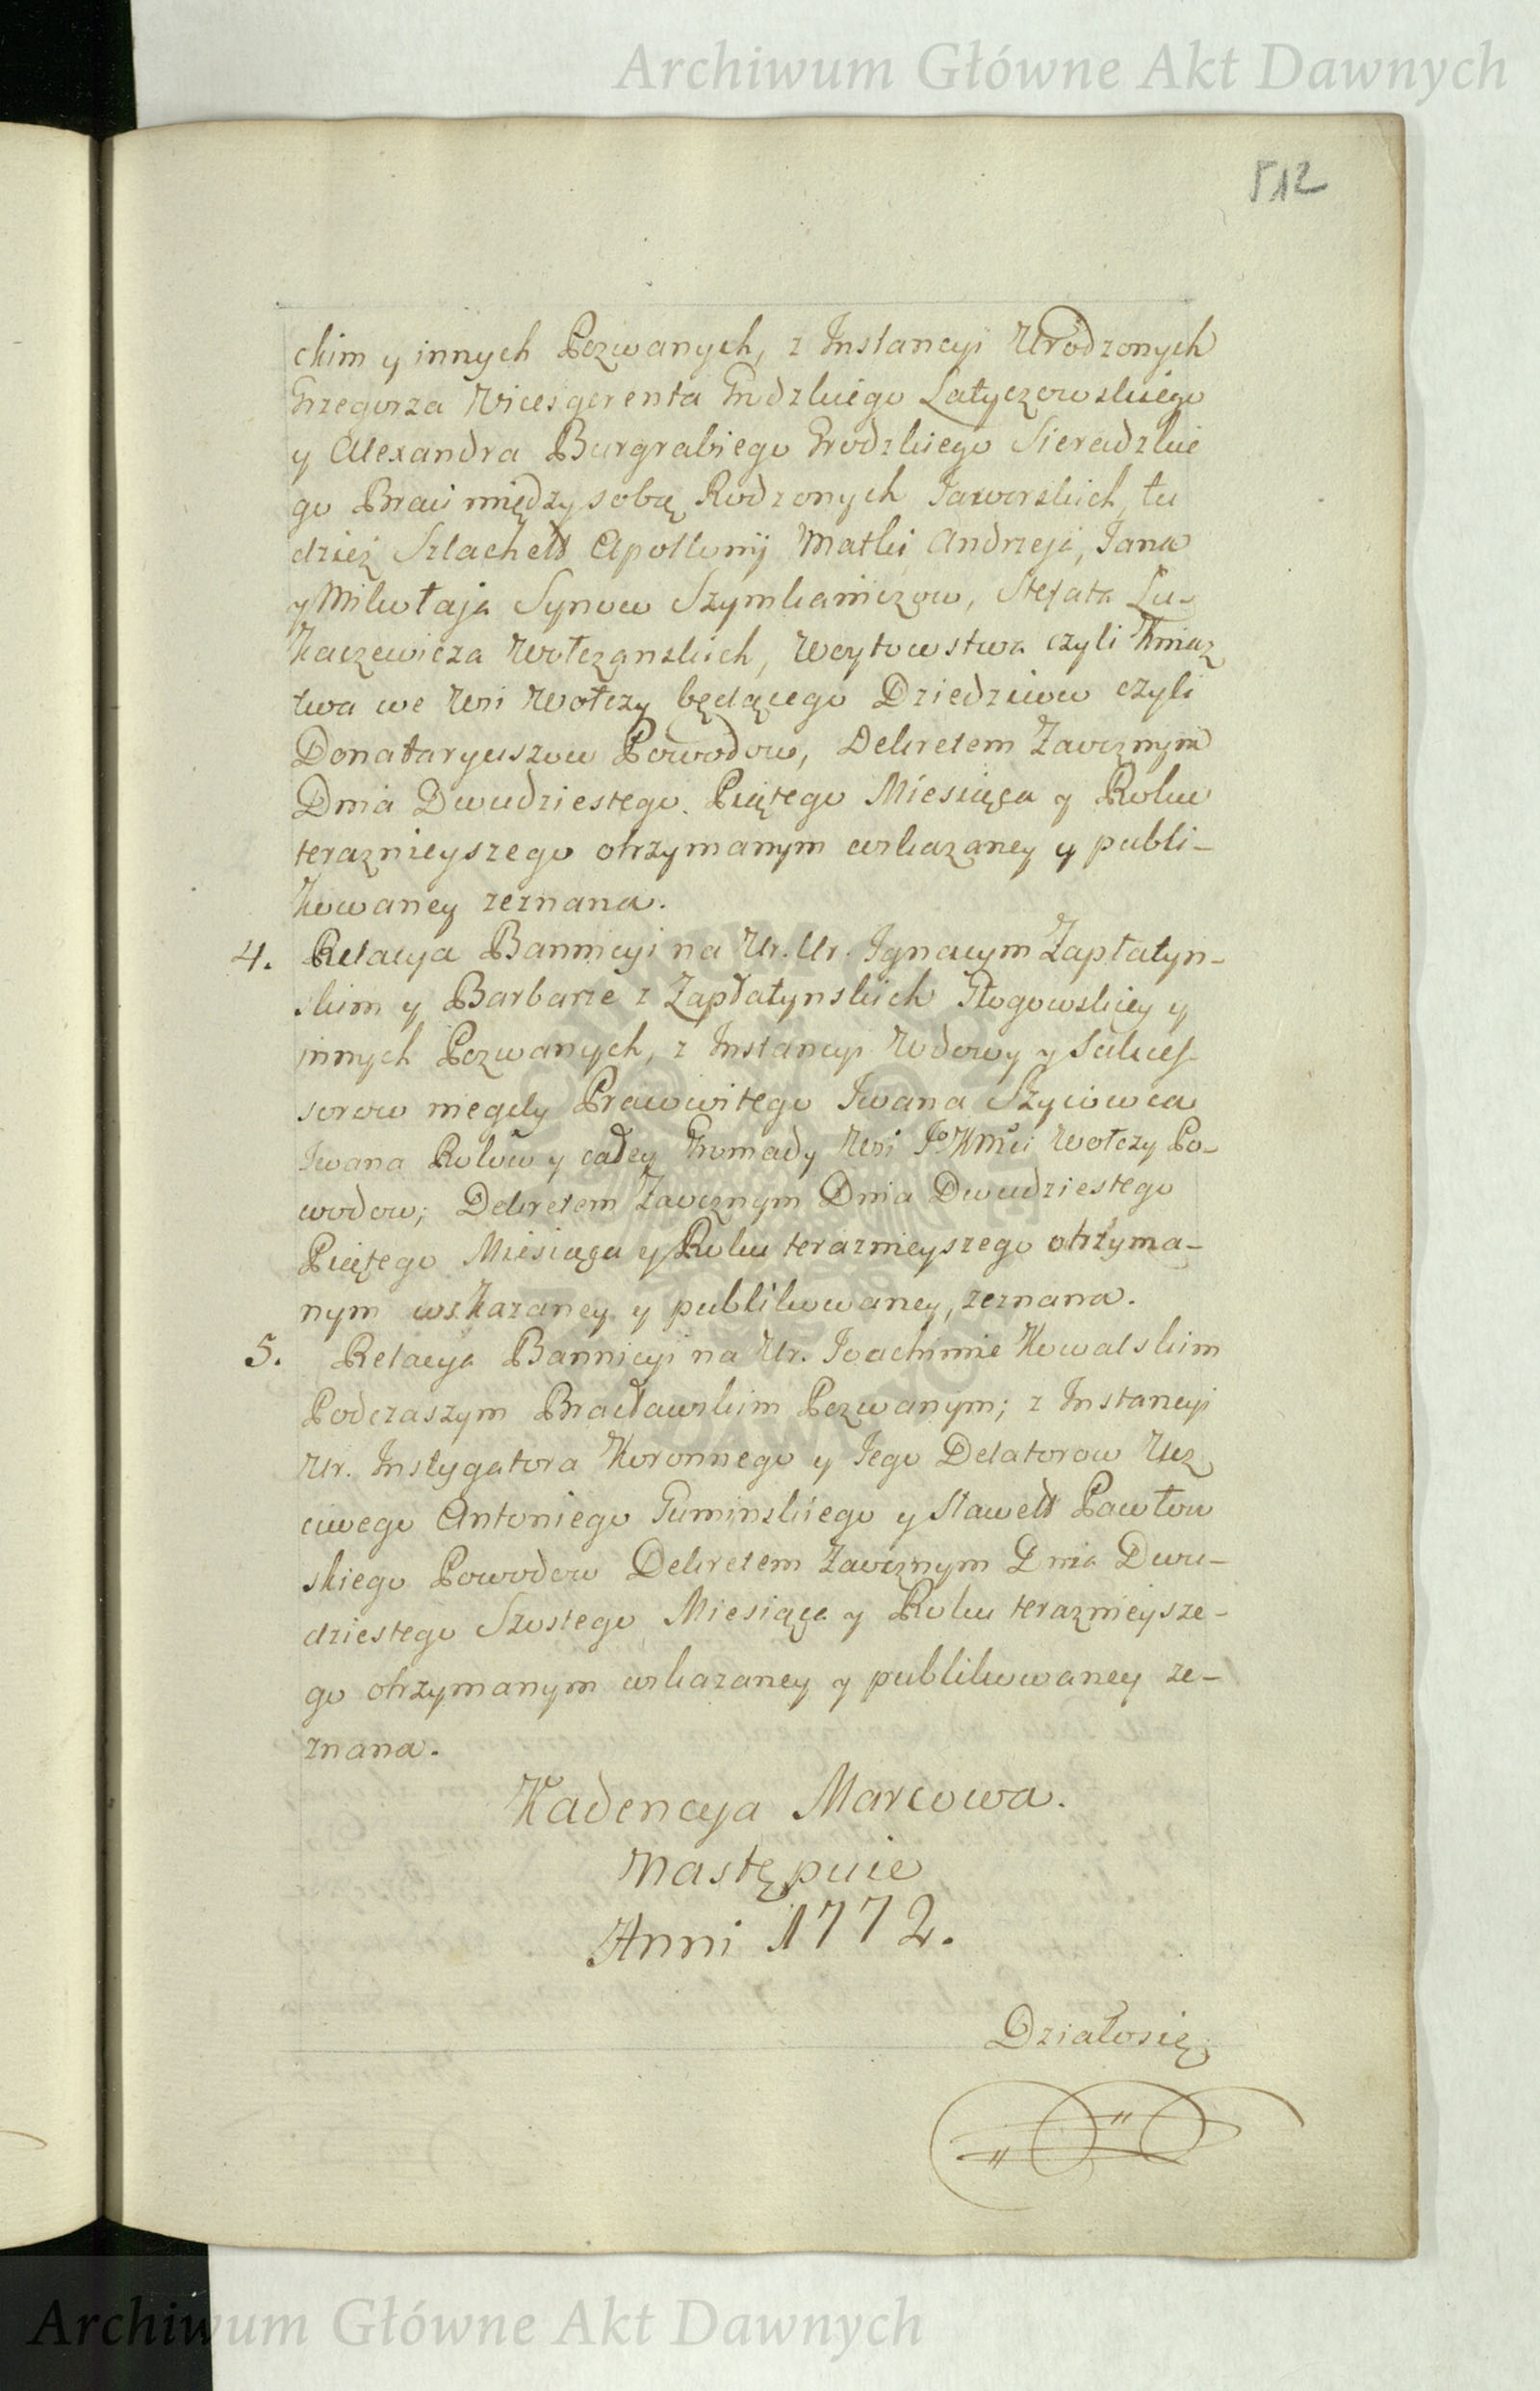 Archiwum Główne Akt Dawnych
512
ckim y innych Pozwanych, z Instancyi Urodzonych
Grzegorza Vicesgerenta Grodzkiego Latyczowskiego
y Alexandra Burgrabiego Grodzkiego Sieradzkie
go Braci między sobą Rodzonych Jaworskich, tu
dzież Szlachett Apollonij Matki, Andrzeja, Jana
y Mikołaja Synow Szymkaniczow, Stefata Łu-
kaczewicza Wołczanskich, Woytowstwa czyli Kniaz
twa we Wsi Wołczy będącego Dziedzicow czyli
Donataryuszow Powodow, Dekretem Zaocznym
Dnia Dwudziestego Piątego Miesiąca y Roku
teraznieyszego otrzymanym wskazaney y publi-
kowaney zeznana.
4. Relacya Bannicyi na Ur. Ur. Ignacym Zapłatyn-
skim y Barbarze z Zapłatynskich Głogowskiey y
innych Pozwanych, z Instancyi Wdowy y Sukces-
sorow niegdy Pracowitego Iwana Szyciowca
Iwana Rokow y całey Gromady Wsi Jº Kmci Wołczy Po-
wodow; Dekretem Zaocznym Dnia Dwudziestego
Piątego Miesiąca y Roku teraznieyszego otrzyma-
nym wskazaney y publikowaney, zeznana.
5. Relacya Bannicyi na Ur. Joachimie Kowalskim
Podczaszym Bracławskim Pozwanym; z Instancyi
Ur. Instygatora Koronnego y Jego Delatorow Ucz
ciwego Antoniego Guminskiego y Sławett Pawłow
skiego Powodow Dekretem Zaocznym Dnia Dwu-
dziestego Szostego Miesiąca y Roku teraznieysze-
go otrzymanym wskazaney y publikowaney ze-
znana.
Kadencya Marcowa.
Następuie
Anni 1772.
Działosię
Archiwum Główne Akt Dawnych